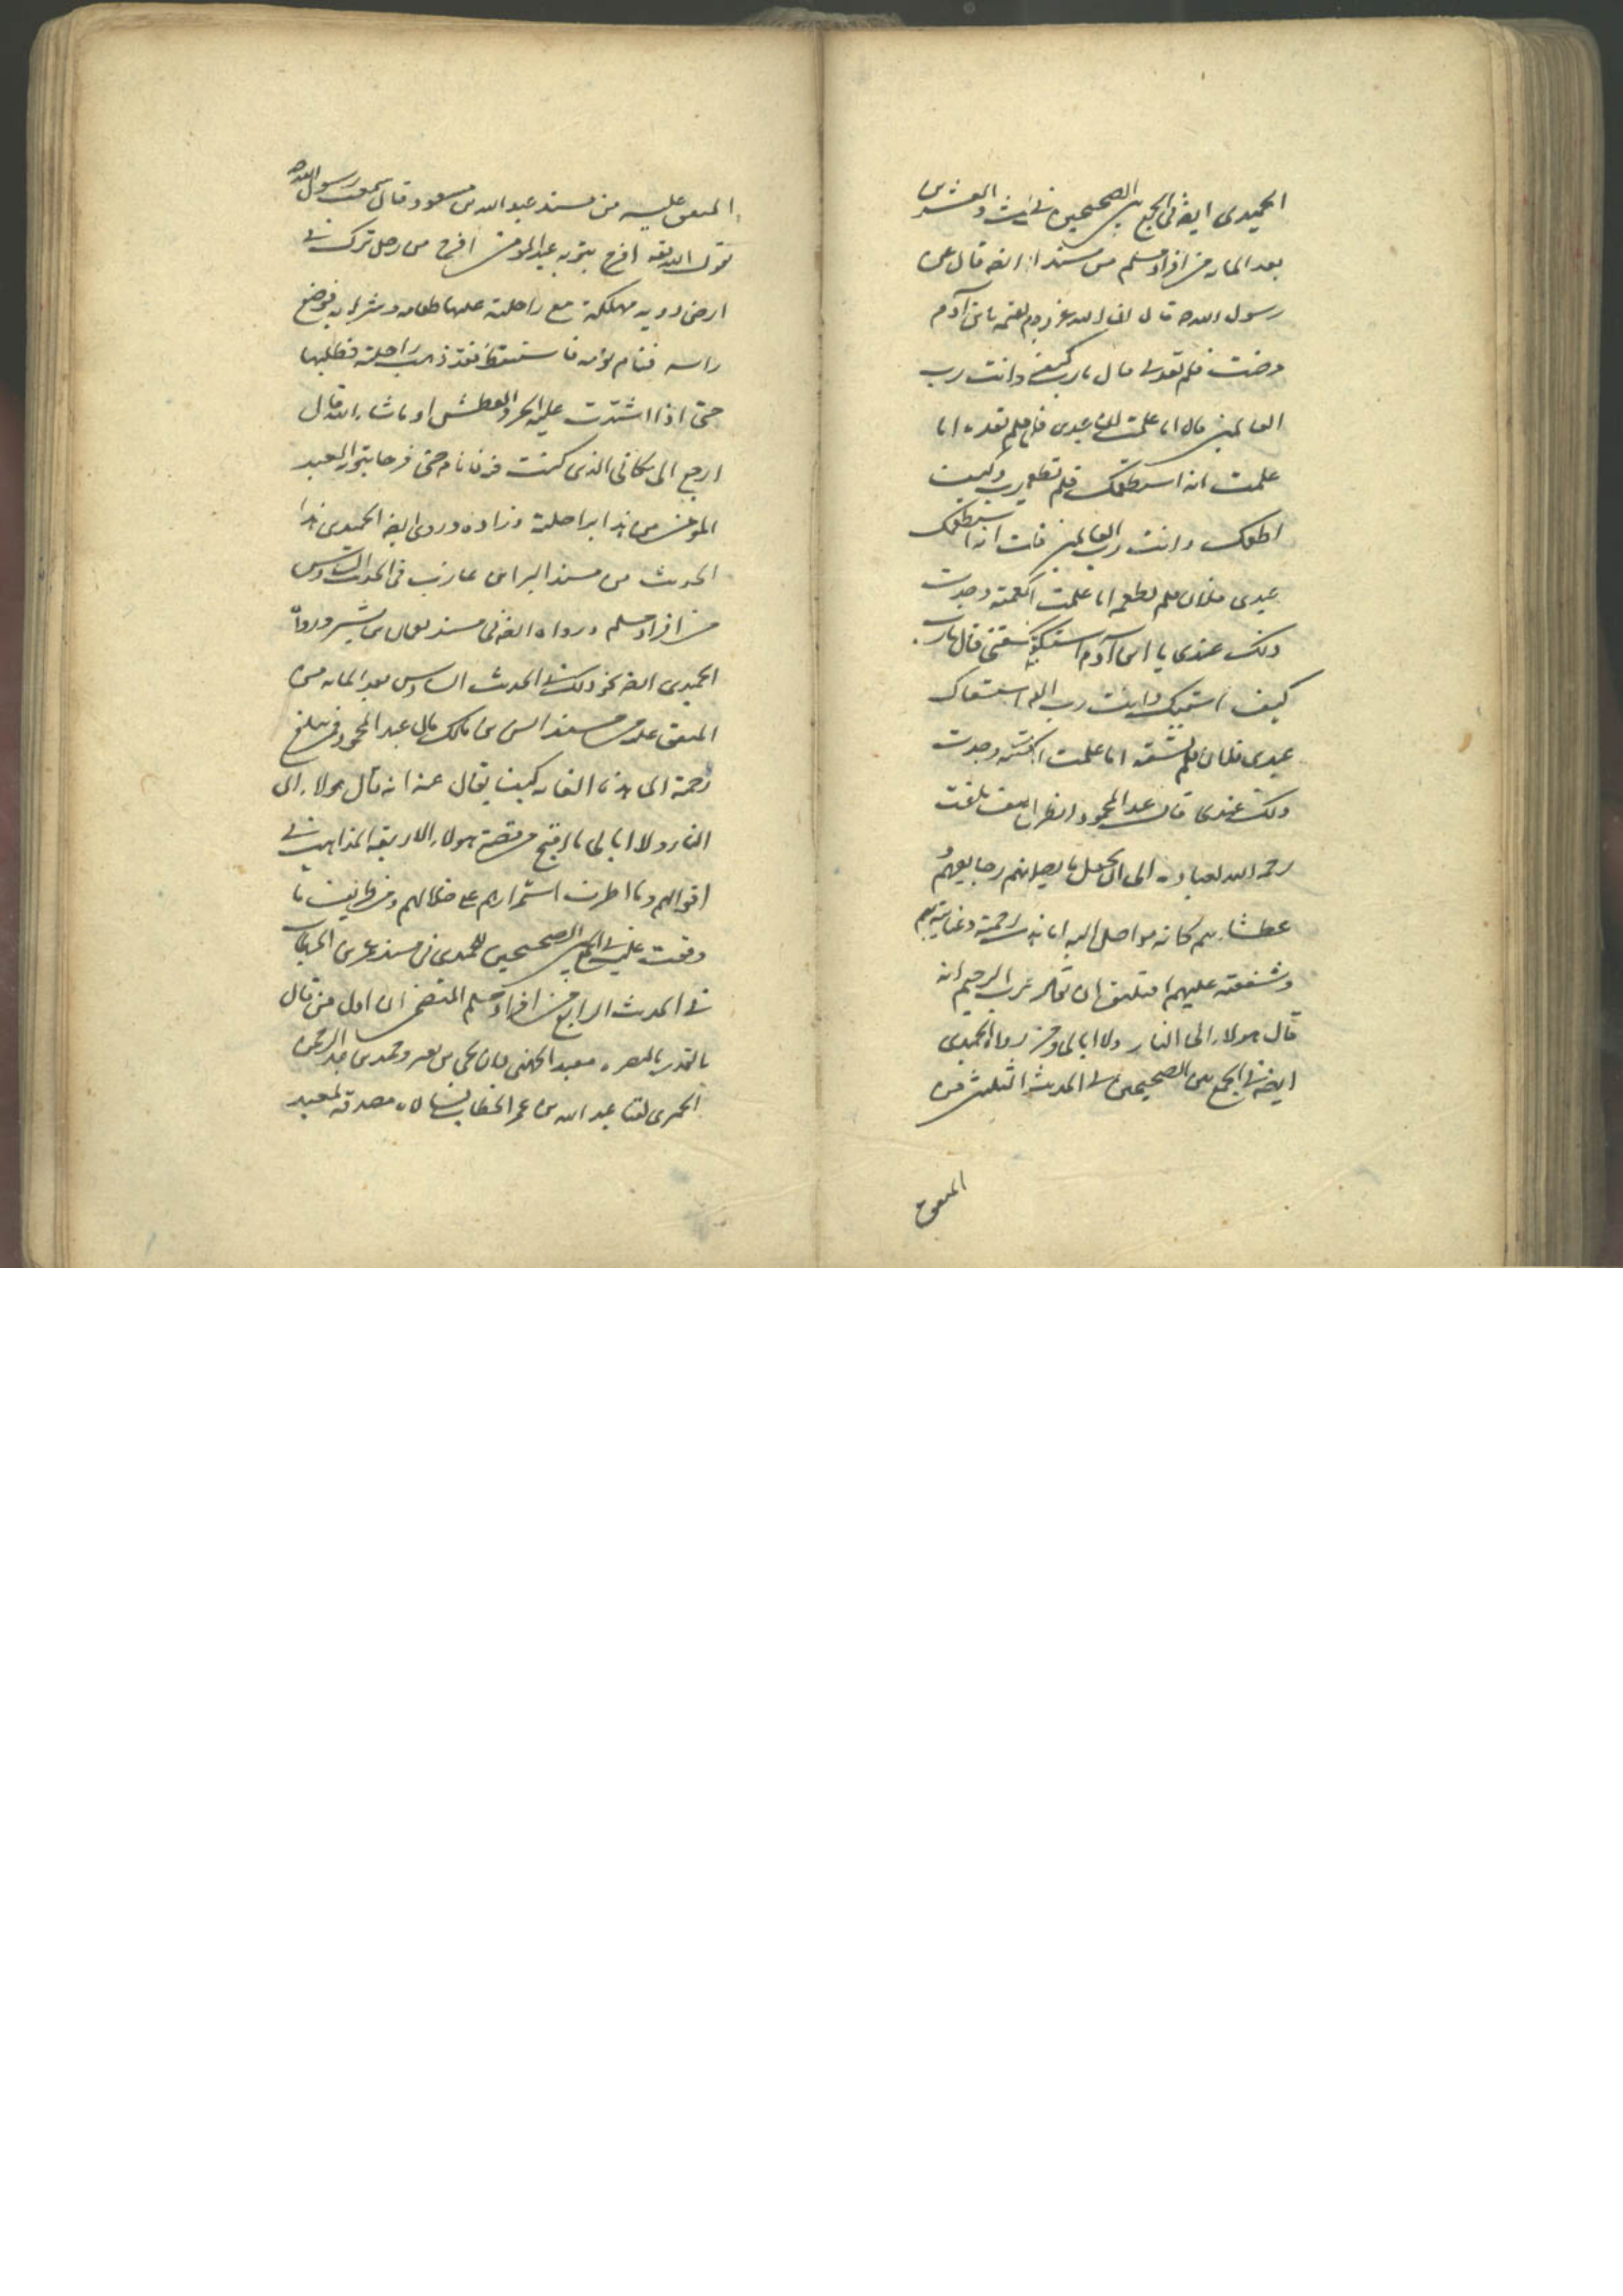 الحميدى ايضا فى الجمع بين الصحيحين فى الثالث والعشرين
بعد المايه من افراد مسلم من مسند ايضه قال عن
رسول الله ص قال ان الله عز وجل يقول يا بن آدم
مرضت فلم تعدنى قال يا رب كيف وانت رب
العالمين قال اما علمت ان عبدى فلان فلم تعده اما
علمت انه استطعمك فلم تطعم يا رب وكيف
اطعمك وانت رب العالمين قال انه استطعمك
عبدى فلان فلم تطعمه اما علمت اطعمته وجدت
ذلك عندى يا ابن آدم استسقيتك فلم تسقنى قال يا رب
كيف اسقيك وانت رب العا استسقاك
عبدى فلان فلم تسقه اما علمت وجدت
ذلك عندى قال عبد المحمود انظر كيف بلغت
رحمة الله لعباده الى ان يجعل ما يصل
عطشانهم كانه مواصل اليه اما هذه رحمة وعنايته بهم
وشفقته عليهم افيليق ان يقال عن الرب الرحيم انه
قال هولاء الى النار ولا ابالى ومن رواه الحميدى
ايضه فى الجمع بين الصحيحين فى الحديث الثلثين من
المتفق
المتفق عليه من مسند عبد الله بن مسعود قال سمعت رسول الله ص
يقول الله تعه افرح بتوبه عبد المومن افرح من رجل ترك فى
ارض دويه مهلكة مع راحلته عليها طعامه وشرابه فوضع
راسه فنام نومه فاستيقظ فقد ذهبت راحلته فطلبها
حتى اذا اشتدت عليه الحر والعطش او ما شاء الله قال
ارجع الى مكانى الذى كنت فيه فانام حتى فرحا بتوبه العبد
المومن من هذا براحلته وزاده وروى ايضه الحميدى هذا
الحديث من مسند البراء بن عازب فى الحديث السادس
من افراد مسلم ورواه ايضه فى مسند نعمان بن بشير ورواه
الحميدى ايضه نحو ذلك فى الحديث السادس بعد المايه من
المتفق عليه من مسند انس بن مالك قال عبد المحمود فمن يبلغ
رحمة الى هذه الغايه كيف يقال عنه انه قال هولاء الى
النار ولا ابالى ما اقبح قصة هولاء الاربعه المذاهب فى
اقوالهم وما اطرف استمرارهم على ضلالهم ومن طرايف ما
وقفت عليه فى الجمع بين الصحيحين للحميدى فى مسند عمر بن الخطاب
فى الحديث الرابع من افراد مسلم المتضمن ان اول من قال
بالقدر بالبصره معبد الجهنى فان يحيى بن يعمر وحميد بن عبد الرحمن
الحميرى لقيا عبد الله بن عمر الخطاب فسالاه مصدقه لمعبد